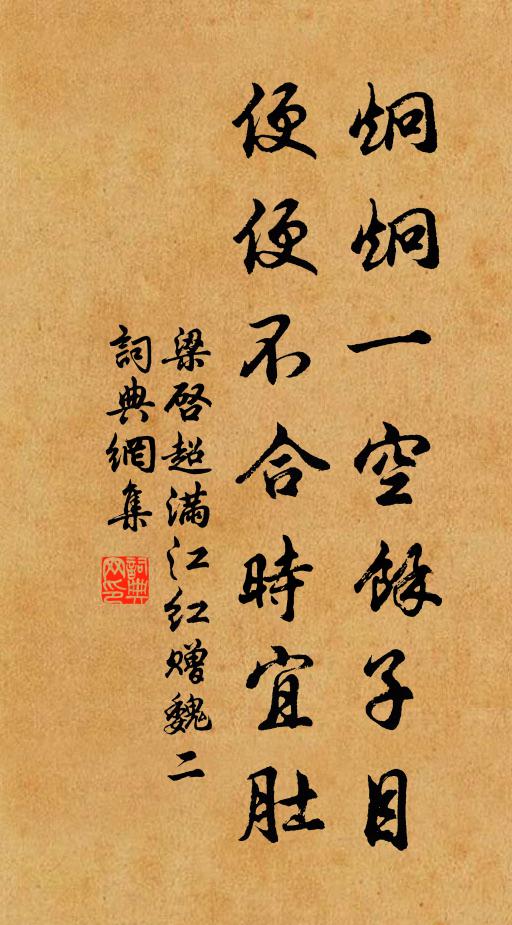 炯炯一空餘子目
便便不合時宜肚
梁啓超滿江红贈魏二
詞典網集
詞典网印